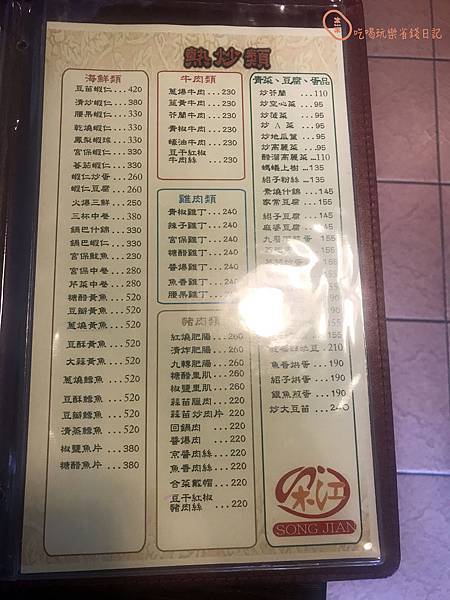 吃喝玩樂省錢日記
熱炒類
海鮮類
豆苗蝦仁...420
清炒蝦仁...380
腰果蝦仁...330
乾燒蝦仁...330
鳳梨蝦球...330
宮保蝦仁...330
蕃茄蝦仁...330
蝦仁炒蛋...260
蝦仁豆腐...260
火爆三鮮...350
三杯中卷...380
鍋巴什錦...330
鍋巴蝦仁...380
宮保魷魚...280
宮保中卷...280
芹菜中卷...280
糖醋黃魚...520
豆瓣黃魚...520
蔥燒黃魚...520
豆酥黃魚...520
大蒜黃魚...520
蔥燒鱈魚...520
豆酥鱈魚...520
豆瓣鱈魚...520
清蒸鱈魚...520
椒鹽魚片...380
糖醋魚片...380
牛肉類
蔥爆牛肉...230
薑黃牛肉...230
芥蘭牛肉...230
青椒牛肉...230
蠔油牛肉...230
豆干紅椒
牛肉絲...230
雞肉類
青椒雞丁...240
辣子雞丁...240
宮保雞丁...240
糖醋雞丁...240
醬爆雞丁...240
魚香雞丁...240
腰果雞丁...240
豬肉類
紅燒肥腸...260
清炸肥腸...260
九轉肥腸...260
糖醋里肌...260
椒鹽里肌...260
蒜苗臘肉...220
蒜苗炒肉片...220
回鍋肉...220
醬爆肉...220
京醬肉絲...220
魚香肉絲...220
合菜戴帽...220
豆干紅椒
豬肉絲...220
青菜、豆腐、蛋品
炒芥蘭...110
炒空心菜...95
炒菠菜...95
炒A菜...95
炒地瓜葉...95
炒高麗菜...95
醋溜高麗菜...110
螞蟻上樹...135
紹子粉絲...135
素燒什錦...145
家常豆腐...145
紹子豆腐...145
麻婆豆腐...145
155
155
155
豆...210
魚香烘蛋...190
紹子烘蛋...190
銀魚煎蛋...190
炒大豆苗...240
宋江
SONG JIAN